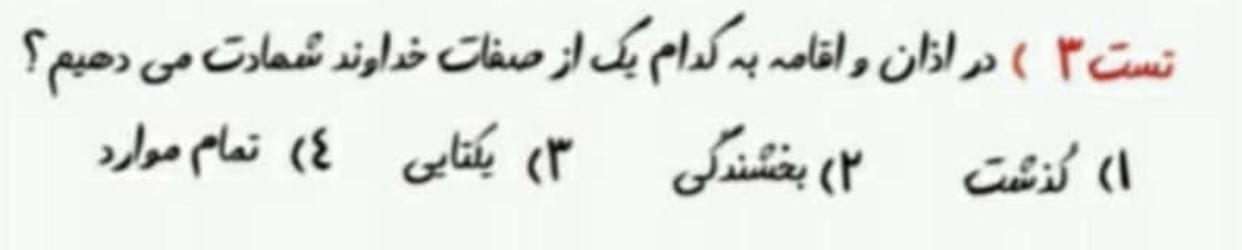 تست ۳ ) در اذان و اقامه به کدام یک از صفات خداوند شهادت می دهیم ؟
۱) گذشت ۲) بخشندگی ۳) یکتایی ٤) تمام موارد